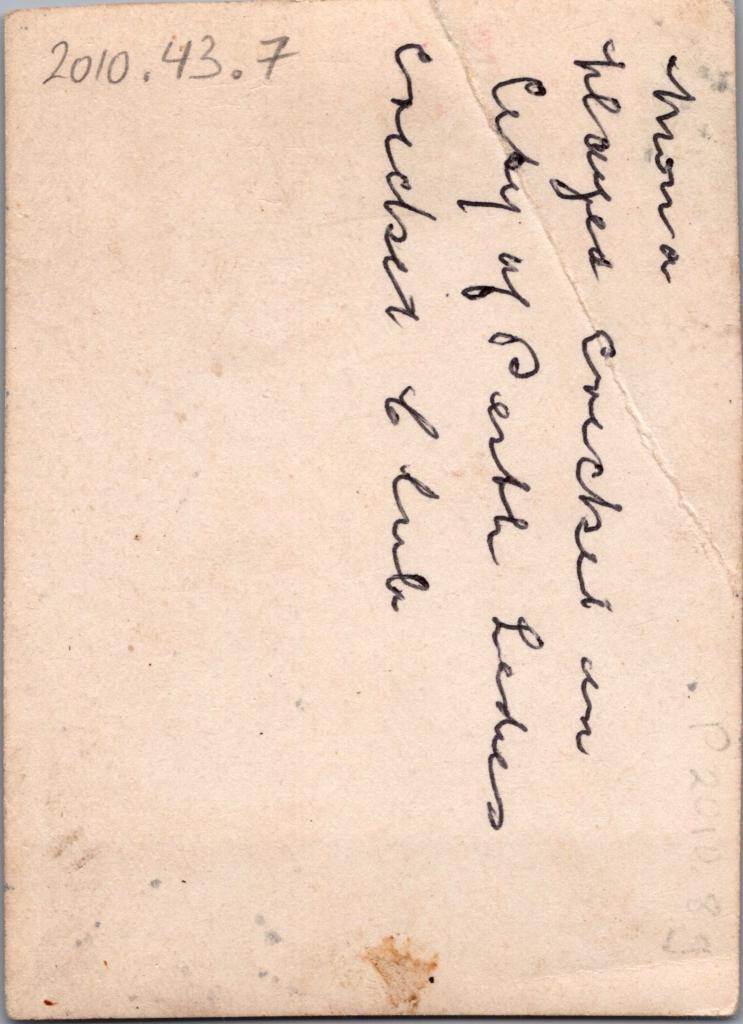 2010.43.7
Mona
played cricket in
City of Perth Ladies
Cricket Club
P2010.89